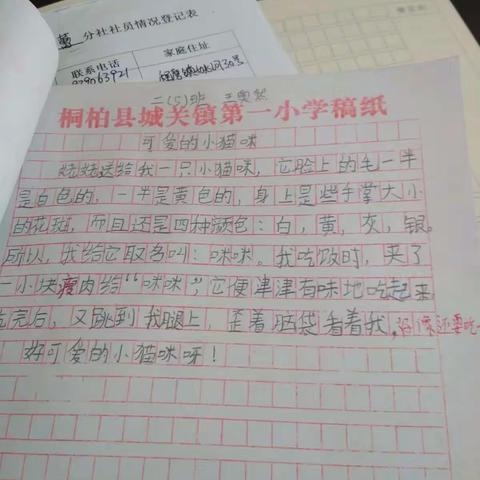 分社社员情况登记表
联系电话
家庭住址
二(5)班 王奥然
桐柏县城关镇第一小学稿纸
可爱的小猫咪
姥姥送给我一只小猫咪,它脸上的毛一半
是白色的,一半是黄色的,身上是些手掌大小
的花斑,而且还是四种颜色:白,黄,灰,银。
所以,我给它取名叫:咪咪。我吃饭时,夹了
一小块瘦肉给“咪咪”,它便津津有味地吃起来
吃完后,又跳到我腿上,歪着脑袋看着我,好像还要吃
好可爱的小猫咪呀!